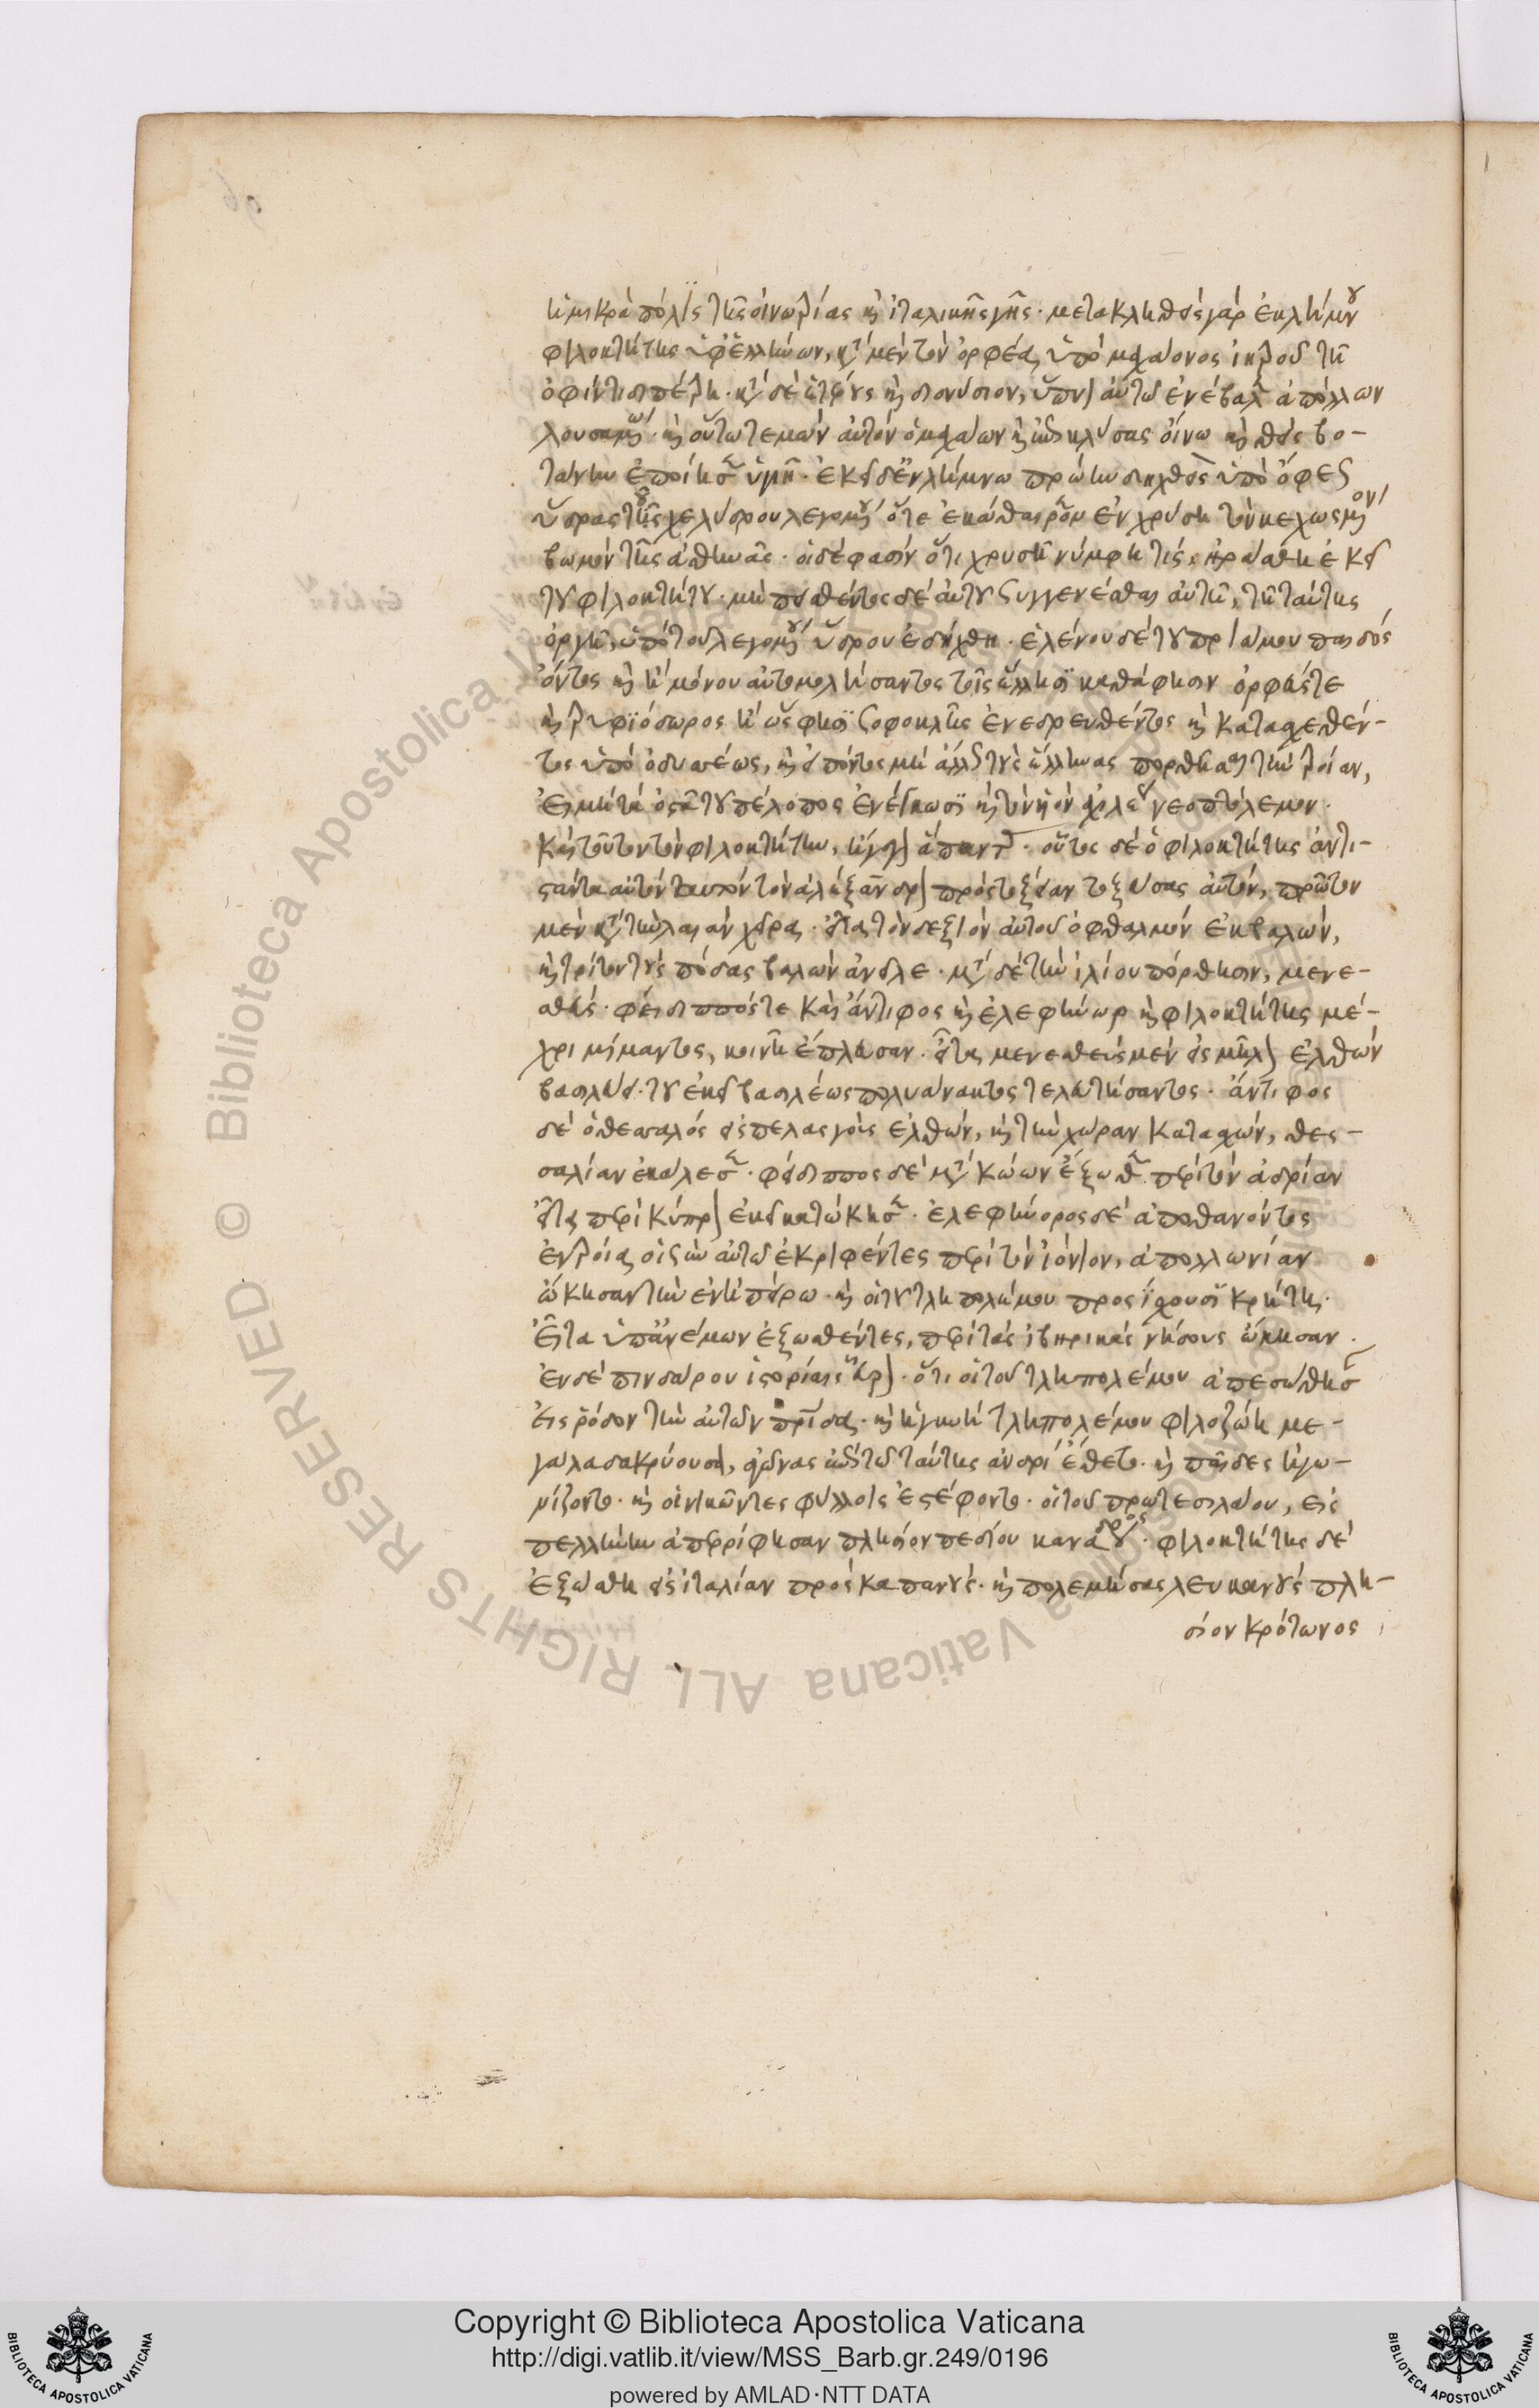 ἡ μικρὰ πόλις τῆς οἰνωτρίας καὶ ἰταλικῆς γῆς. μετακληθεὶς γὰρ ἐκ λήμνου
φιλοκτήτης ὑφ' ἑλλήνων, κατὰ μὲν τὸν ὀρφέα, ὑπὸ μαχάονος ἰατροῦ τῇ
ὀφιήτιδι πέτρῃ. κατὰ δὲ ἑτέρους καὶ διονύσιον, ὕπνον αὐτῷ ἐνέβαλεν ἀπόλλων
λουσαμένῳ. καὶ οὕτω τεμὼν αὐτὸν ὁ μαχάων καὶ κλύσας οἴνῳ καὶ θεὶς βο-
τάνην ἐποίησεν ὑγιῆ. ἐκεῖ δὲ ἐν λήμνῳ πρώην ὑπὸ ὄφεως
ὕδρας τῆς χελύδρου λεγομένου ὅτε ἐκάθαιρεν ἐν χρύσῃ τὸν κεχωσμένον
βωμὸν τῆς ἀθηνᾶς. οἱ δέ φασιν ὅτι χρυσῆ νύμφη τις, ἠράσθη ἐκεῖ
τοῦ φιλοκτήτου. μὴ πεισθέντος δὲ αὐτοῦ συγγενέσθαι αὐτῇ, τῇ ταύτης
ὀργῇ, ὑπὸ τοῦ λεγομένου ὕδρου ἐδήχθη. ἑλένου δὲ τοῦ πριάμου παιδὸς
ὄντος καὶ ἢ μόνου αὐτομολήσαντος τοῖς ἕλλησι καθάφησιν ὀρφεύς τε
καὶ τρυφιόδωρος ἢ ὥς φησι σοφοκλῆς ἐνεδρευθέντος καὶ κατασχεθέν-
τος ὑπὸ ὀδυσσέως, καὶ εἰπόντος μὴ ἄλλως τοὺς ἕλληνας πορθῆσαι τὴν τροίαν,
εἰ μὴ τὰ ὀστᾶ τοῦ πέλοπος ἐνέγκωσι καὶ τὸν υἱὸν ἀχιλλέως νεοπτόλεμον.
καὶ τοῦτον τὸν φιλοκτήτην, ἤγαγον ἅπαντα. οὗτος δὲ ὁ φιλοκτήτης ἀντι-
στάντα αὐτῷ τὸν ἀλέξανδρον πρὸς τοξείαν τοξεύσας αὐτόν, πρῶτον
μὲν κατὰ τὴν λαιὰν χεῖρα. εἶτα τὸν δεξιὸν αὐτοῦ ὀφθαλμὸν ἐκβαλών,
καὶ τρίτον τοὺς πόδας βαλὼν ἀνεῖλε. μετὰ δὲ τὴν ἰλίου πόρθησιν, μενε-
σθεύς. φείδιππός τε καὶ ἄντιφος καὶ ἐλεφήνωρ καὶ φιλοκτήτης μέ-
χρι μίμαντος, κοινῇ ἔπλευσαν. εἶτα μενεσθεὺς μὲν εἰς μῆλον ἐλθὼν
βασιλεύει. τοῦ ἐκεῖ βασιλέως πολυάνακτος τελευτήσαντος. ἄντιφος
δὲ ὁ θεσσαλὸς εἰς πελασγοὺς ἐλθών, καὶ τὴν χώραν κατασχών, θες-
σαλίαν ἐκάλεσεν. φείδιππος δὲ μετὰ κώων ἐξώσθη περὶ τὸν ἀδρίαν
εἶτα περὶ κύπρον ἐκεῖ κατῴκησεν. ἐλεφήνορος δὲ ἀποθανόντος
ἐν τροίᾳ οἱ σὺν αὐτῷ ἐκριφέντες περὶ τὸν ἰόνιον, ἀπολλωνίαν
ᾤκησαν τὴν ἐν ἠπείρῳ. καὶ οἱ τοῦ τληπολέμου προσίσχουσι κρήτῃ.
εἶτα ὑπ' ἀνέμων ἐξωσθέντες, περὶ τὰς ἰβηρικὰς νήσους ᾤκησαν.
ἐν δὲ πινδάρου ἱστορίαις εὗρον. ὅτι οἱ τοῦ τληπολέμου ἀπεσώθησαν
εἰς ῥόδον τὴν αὐτῶν πατρίδα. καὶ ἡ γυνὴ τληπολέμου φιλοζώη με-
γάλα δακρύουσα, ἀγῶνας ἐπὶ τῷ ταύτης ἀνδρὶ ἔθετο. καὶ παῖδες ἠγω-
νίζοντο. καὶ οἱ νικῶντες φύλλοις ἐστέφοντο. οἱ τοῦ πρωτεσιλάου, εἰς
πελλήνην ἀπερρίφησαν πλησίον πεδίου κανάστρου. φιλοκτήτης δὲ
ἐξώσθη εἰς ἰταλίαν πρὸς καπανούς. καὶ πολεμήσας λευκανοὺς πλη-
σίον κρότωνος
Copyright © Biblioteca Apostolica Vaticana
http://digi.vatlib.it/view/MSS_Barb.gr.249/0196
powered by AMLAD·NTT DATA